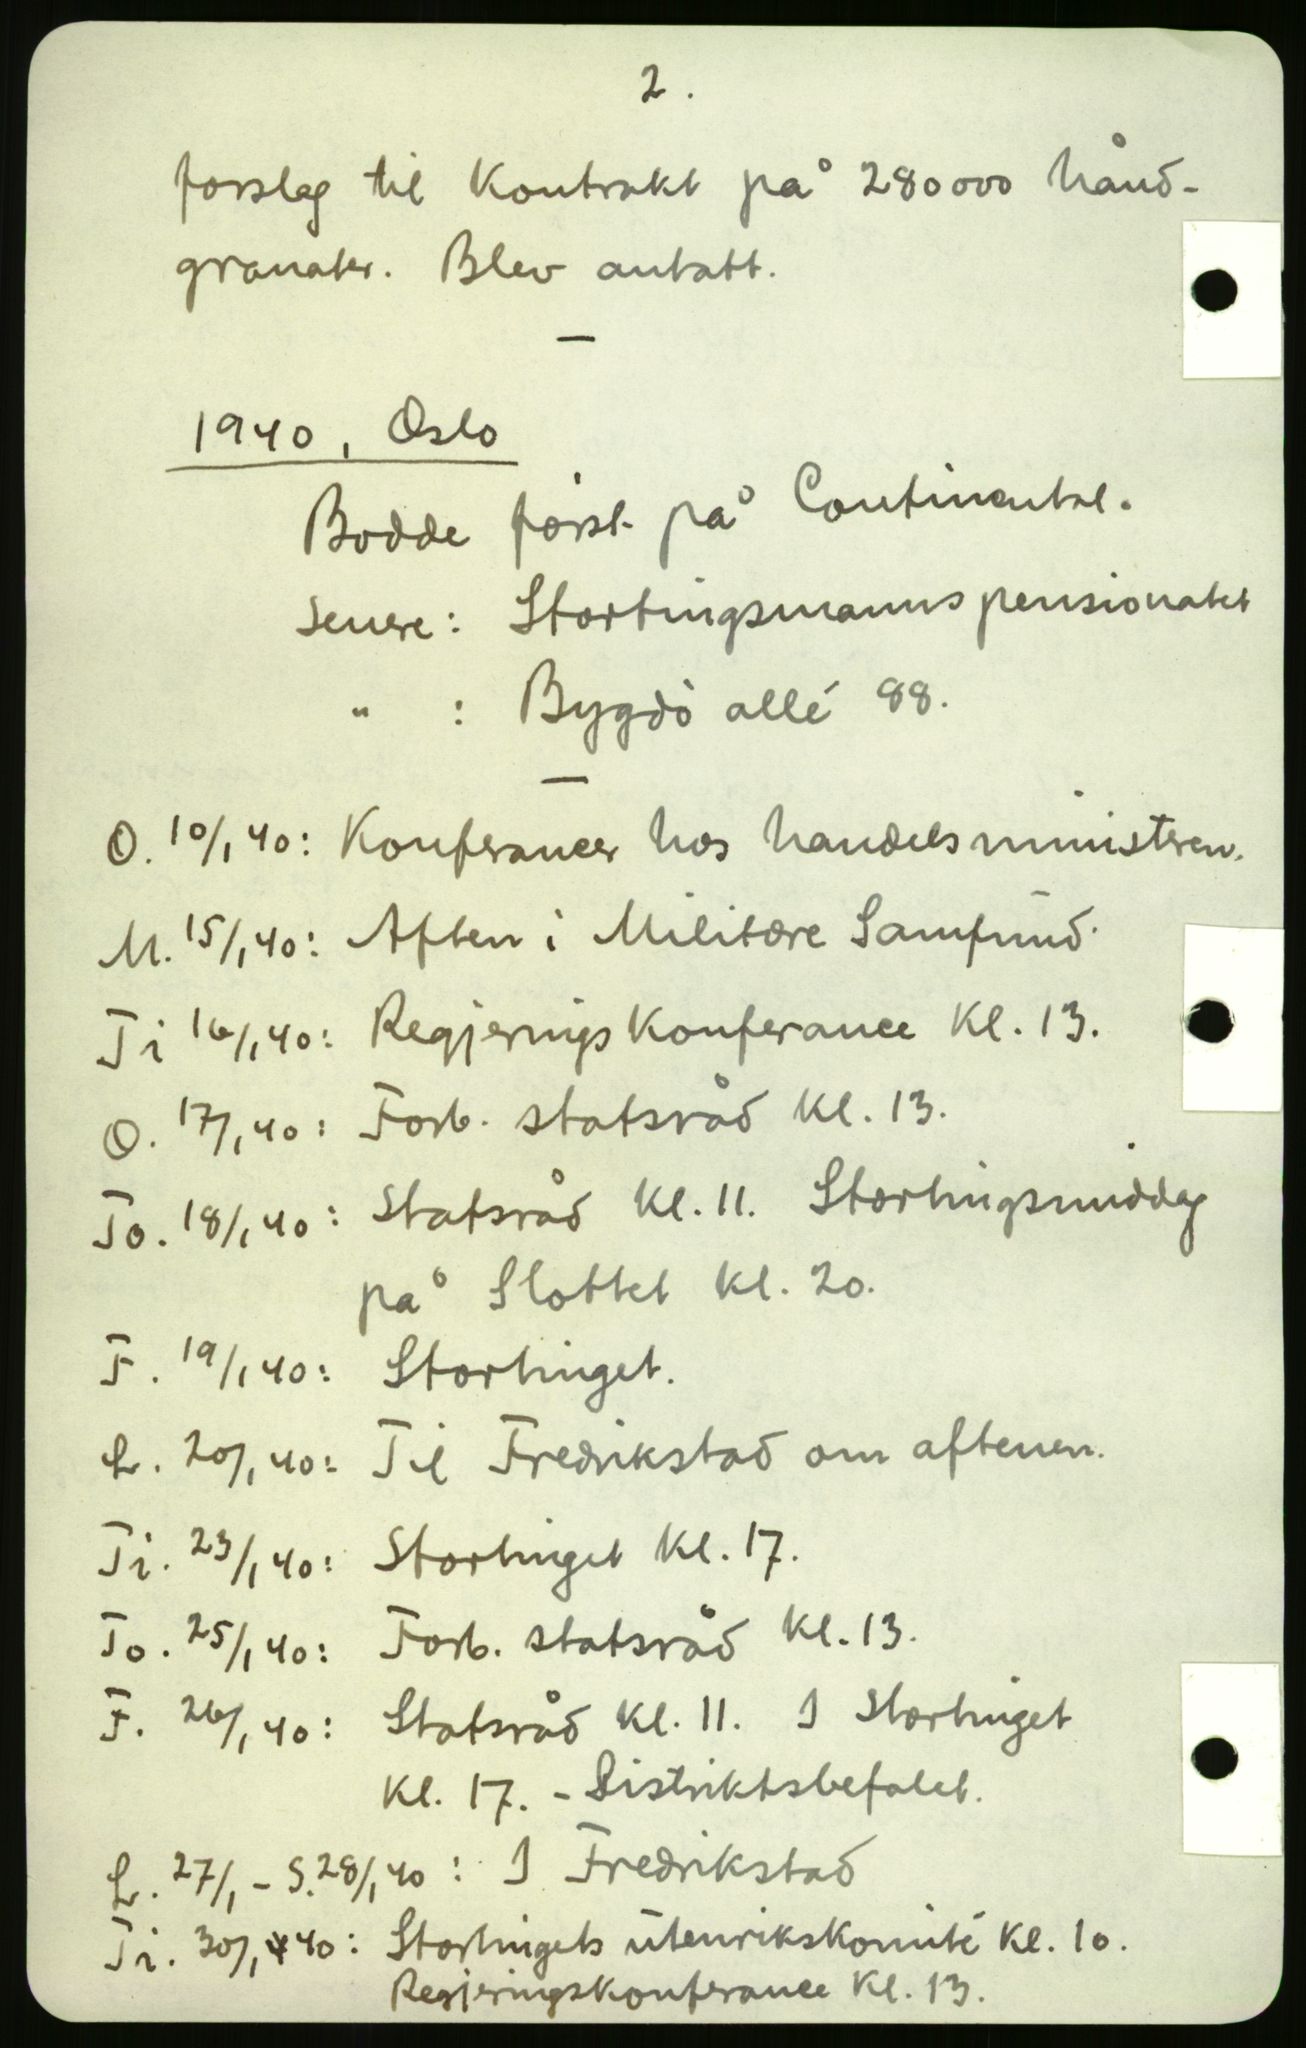 2.
forslag til Kontrakt på 280000 hånd-
granater. Blev antatt.
—
1940, Oslo
Bodde først på Continental.
Senere: Stortingsmannspensionatet
" : Bygdö allé 88.
—
O. 10/1 40: Konferancer hos handelsministeren.
M. 15/1 40: Aften i Militære Samfund.
Ti 16/1 40: Regjeringskonferance Kl. 13.
O. 17/1 40: Forb. statsråd Kl. 13.
To. 18/1 40: Statsråd Kl. 11. Stortingsmiddag
på Slottet Kl. 20.
F. 19/1 40: Stortinget.
L. 20/1 40: Til Fredrikstad om aftenen.
Ti. 23/1 40: Stortinget Kl. 17.
To. 25/1 40: Forb. statsråd Kl. 13.
F. 26/1 40: Statsråd Kl. 11. I Stortinget
Kl. 17. - Distriktsbefalet.
L. 27/1 - S. 28/1 40: I Fredrikstad
Ti. 30/1 40: Stortingets utenrikskomité Kl. 10.
Regjeringskonferance Kl. 13.